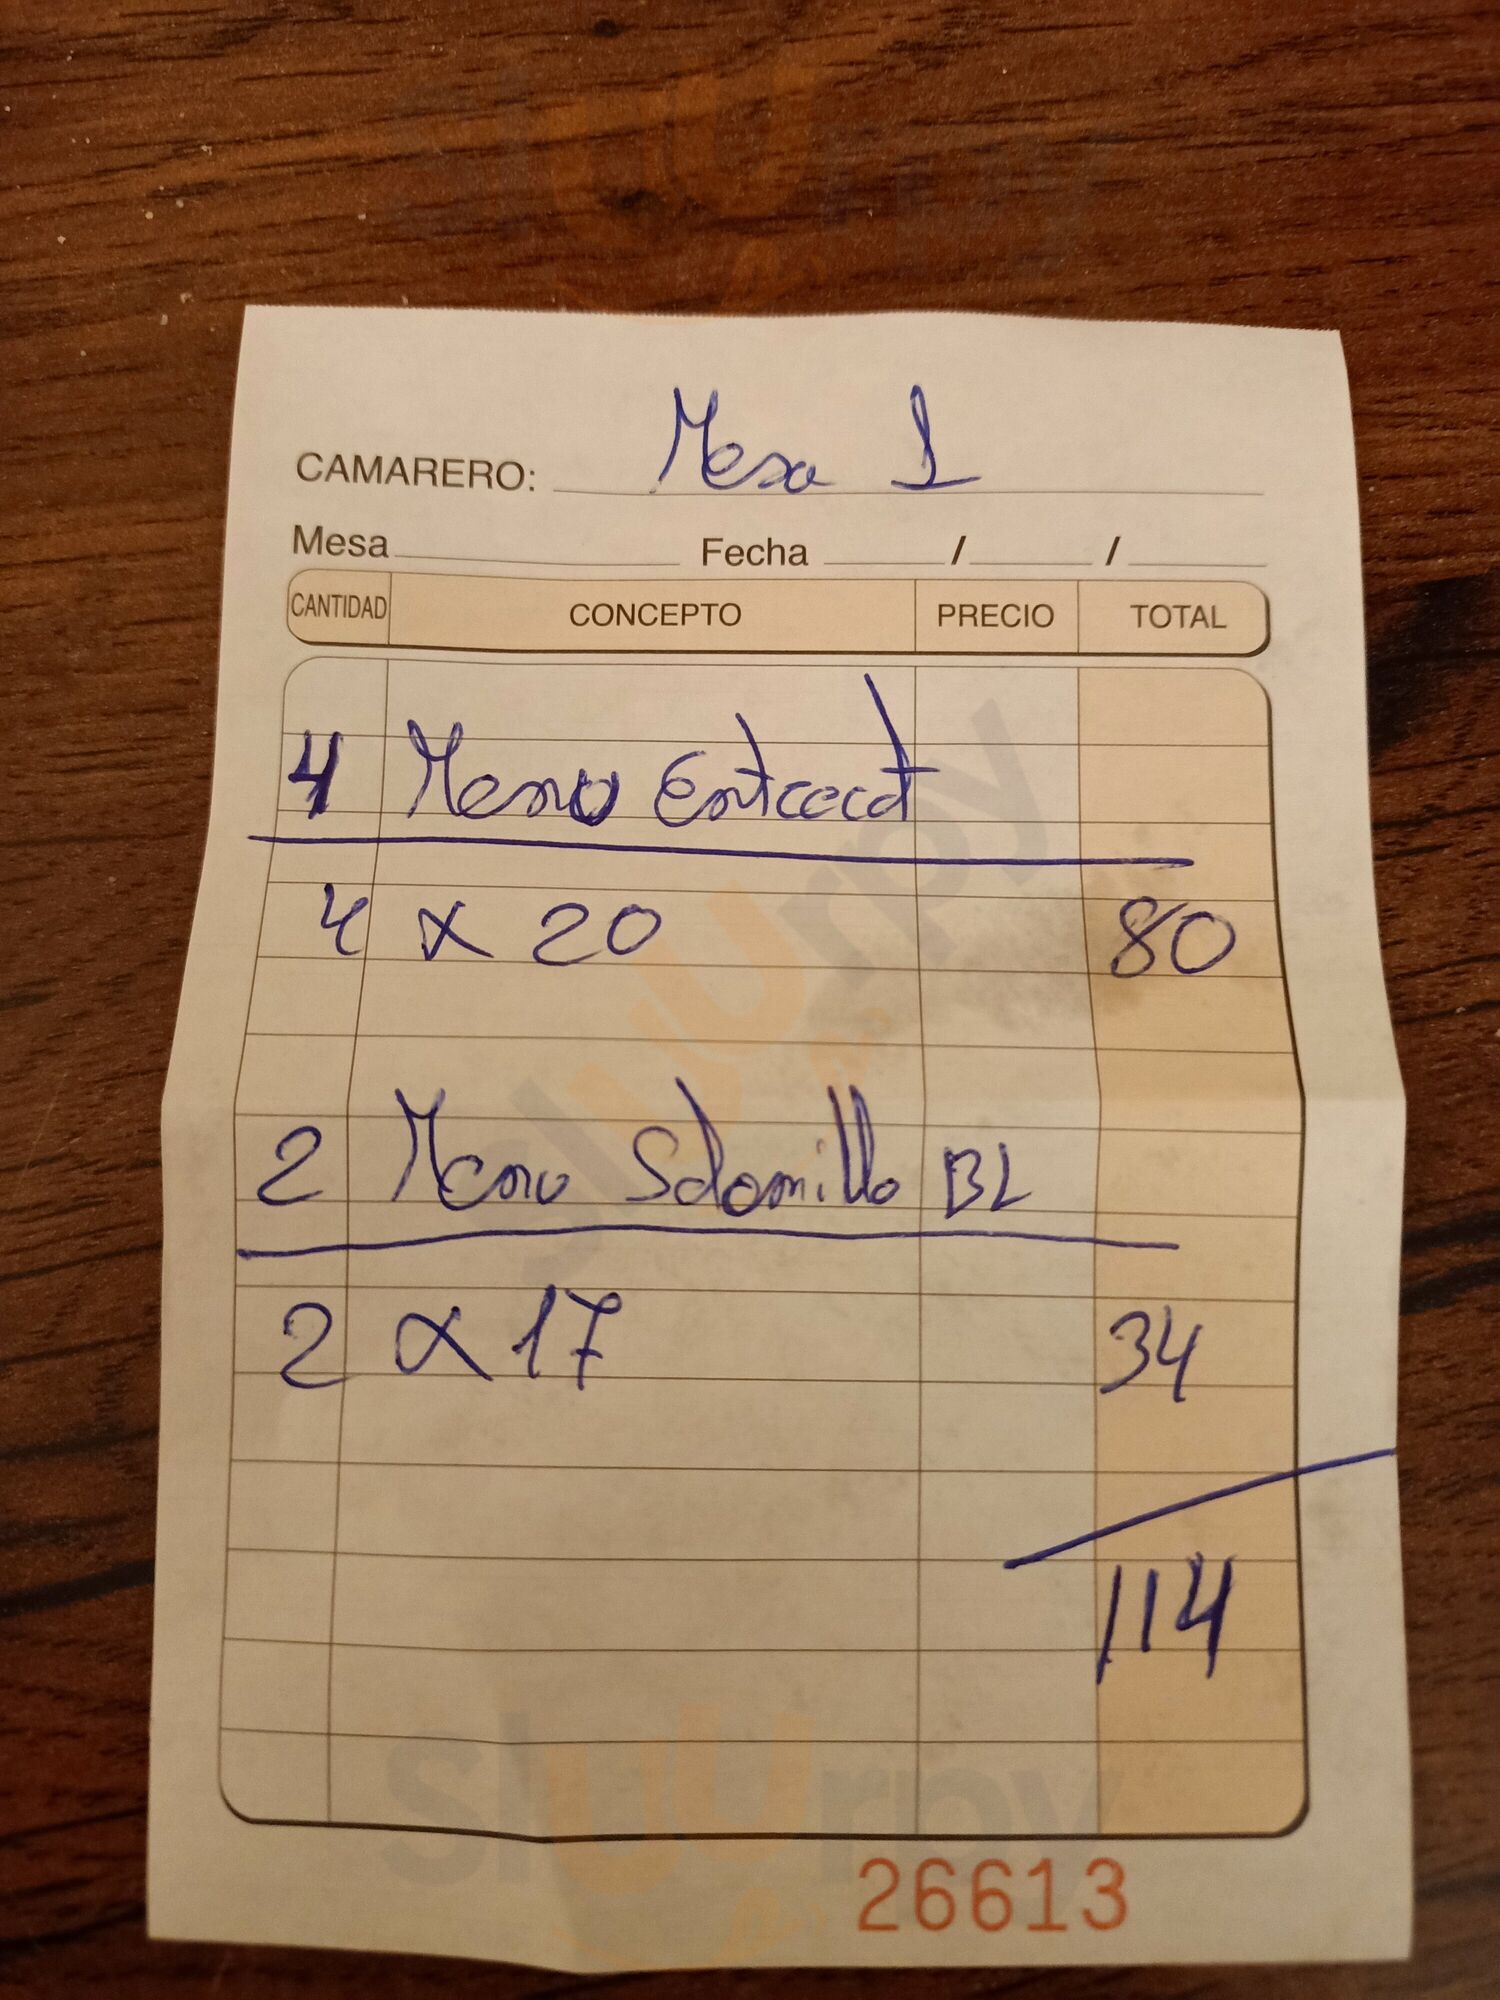 CAMARERO: Mesa 1
Mesa Fecha / /
CANTIDAD CONCEPTO PRECIO TOTAL
4 Menu Entrecot
4 x 20 80
2 Menu Solomillo BL
2 x 17 34
114
26613
sluurpy
sluurpy
sluurpy